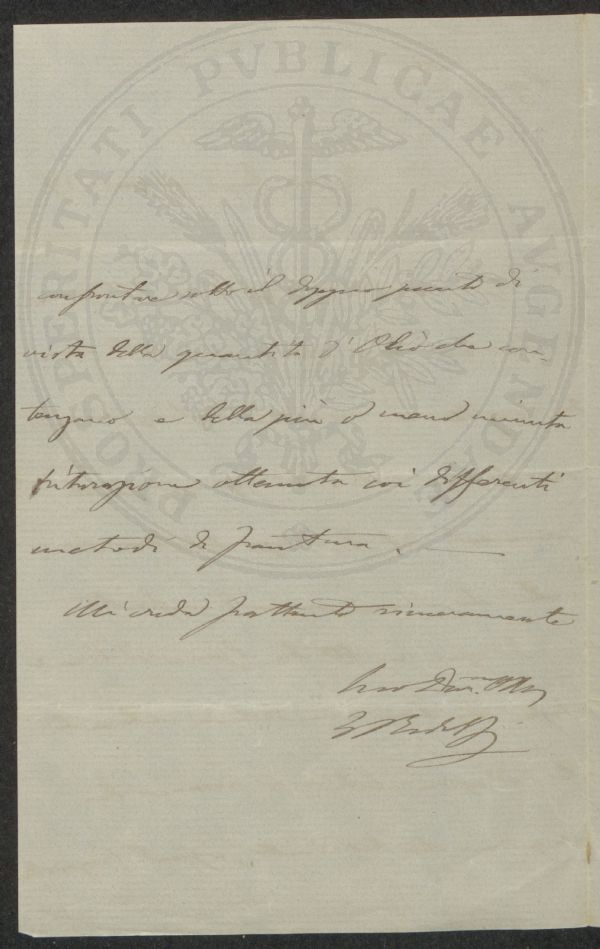 PROSPERITATI PVBLICAE AVGENDAE
confrontare sotto il doppio punto di
vista della quantità d'Olio che con-
tengano e della più o meno minuta
triturazione ottenuta coi differenti
metodi di frantura.
Mi creda frattanto sinceramente
Suo